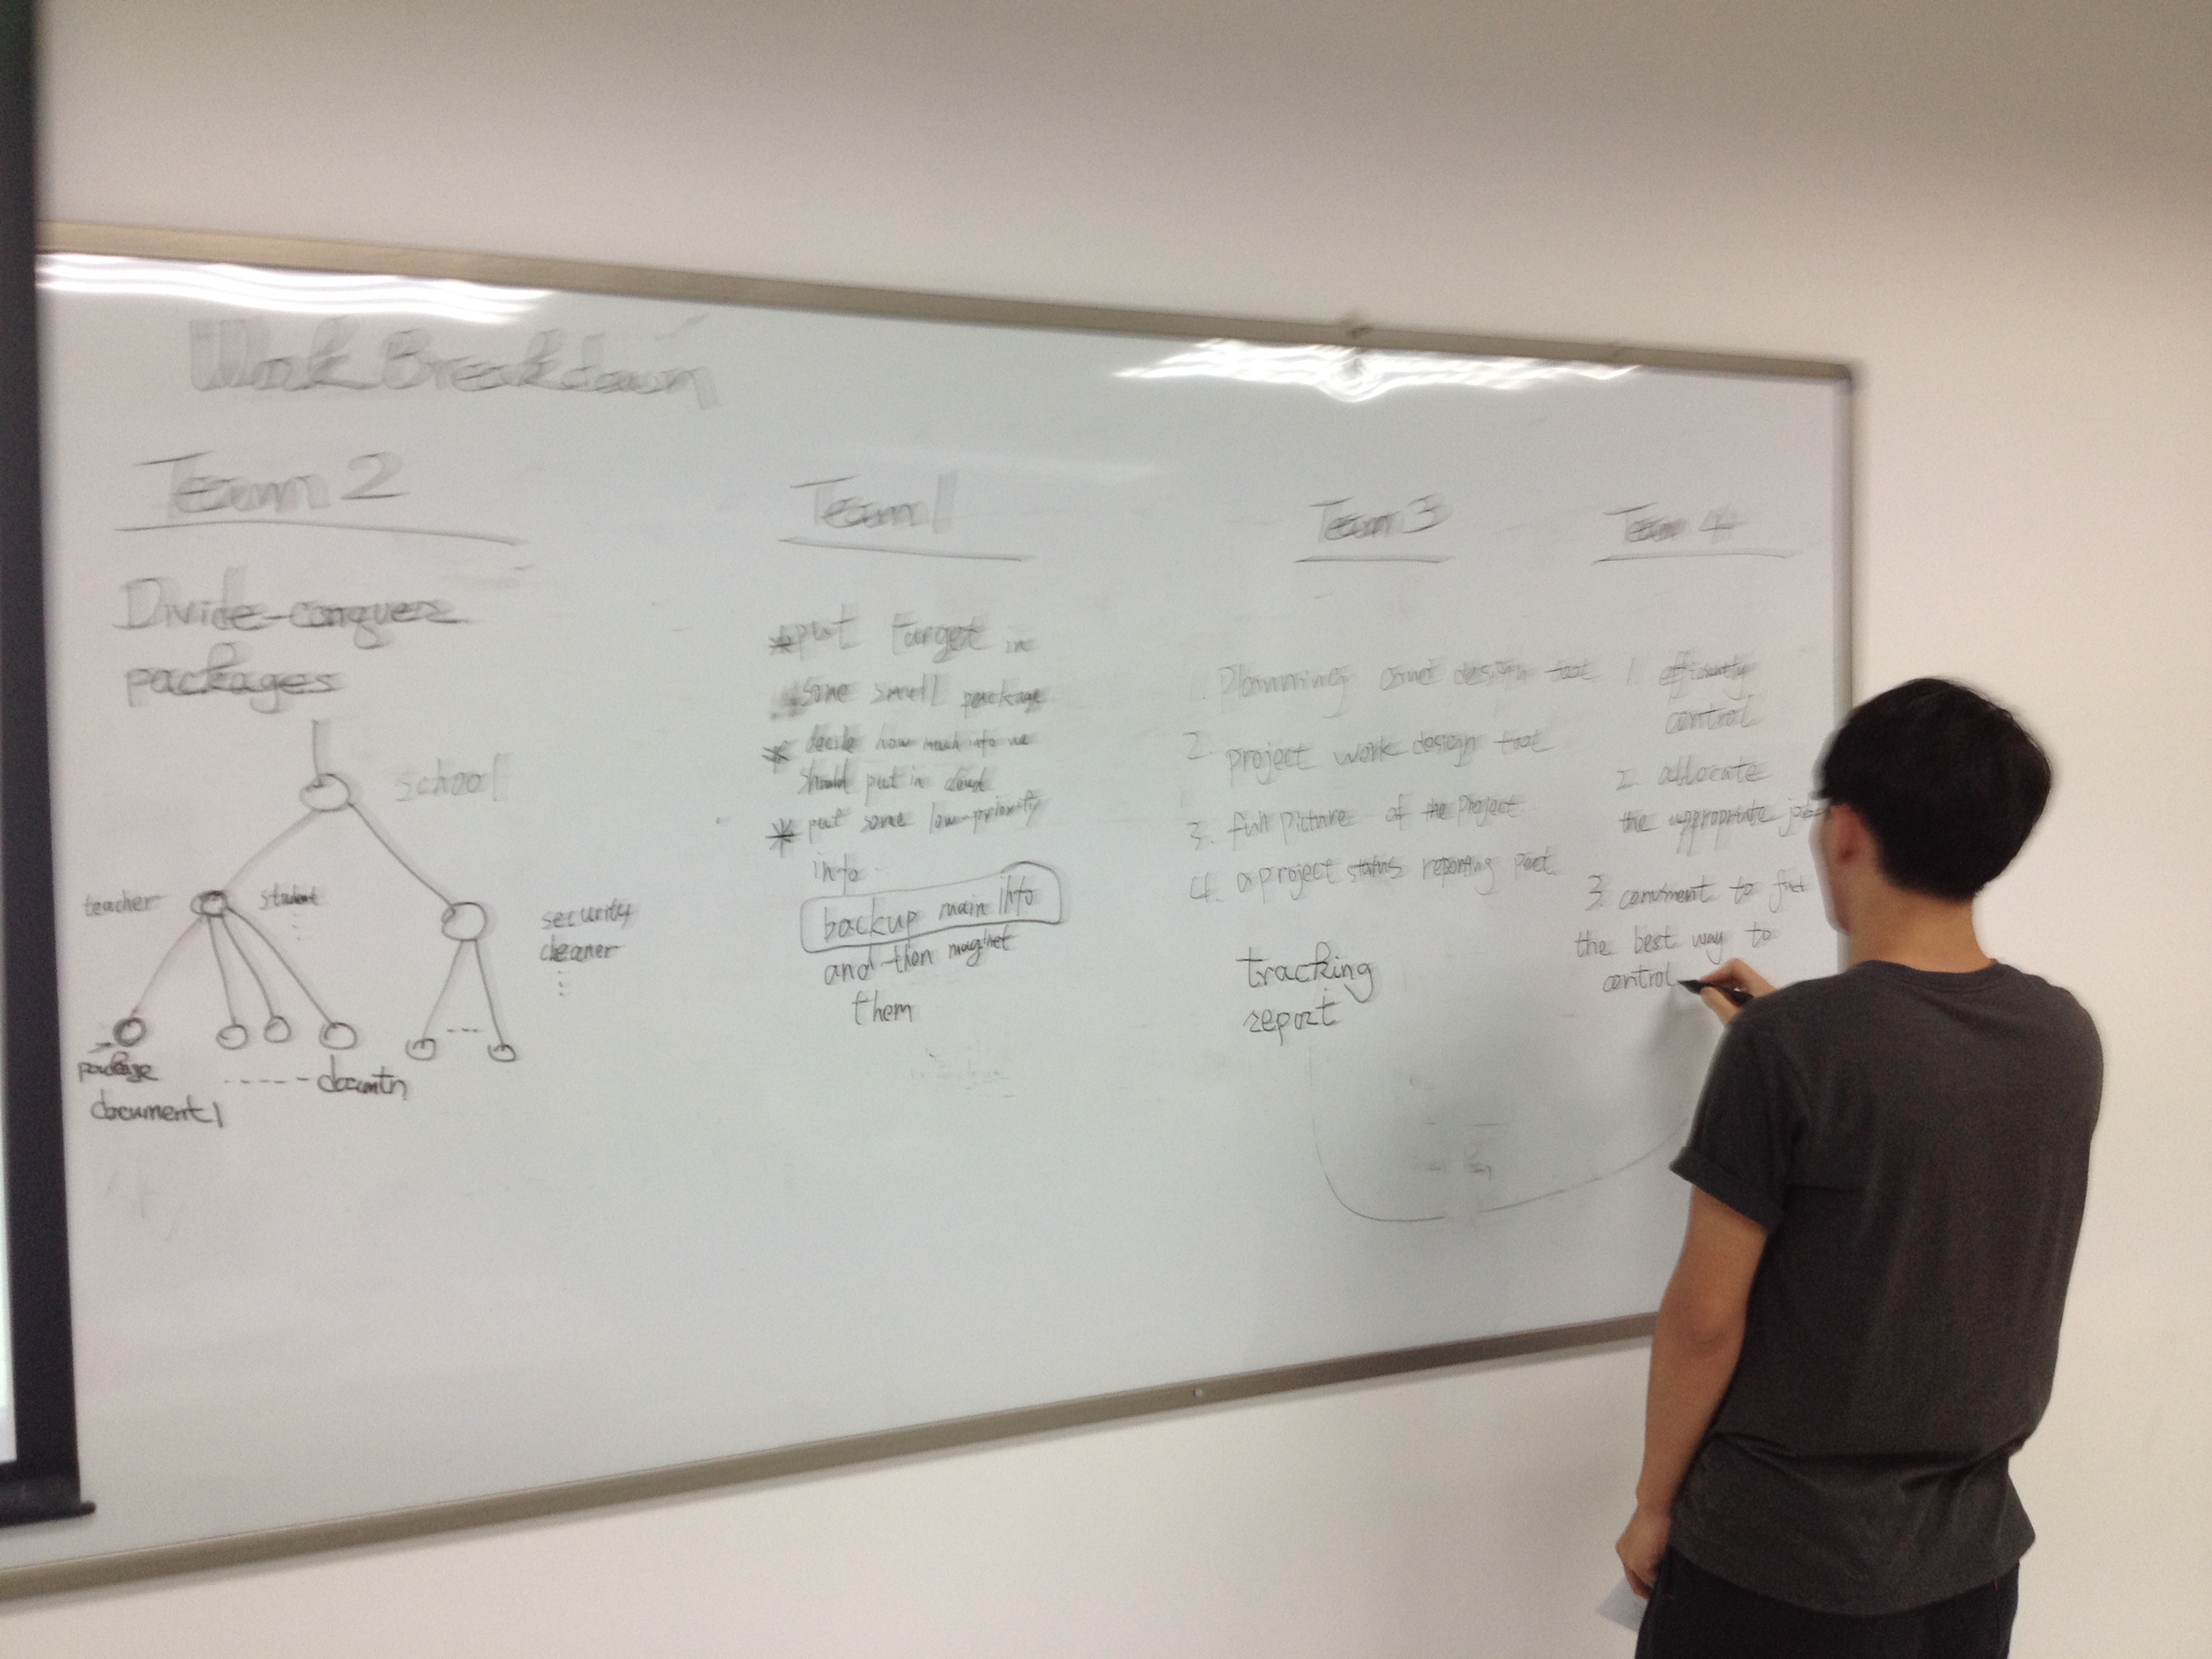 Work Breakdown
Team 2
Divide-conquer
packages
school
teacher
student
security
cleaner
package
document1
-----documtn
Team 1
*put Target in
some small package
* decide how much info we
should put in cloud
* put some low-priority
info
backup main info
and then
them
Team 3
1. Planning and design tool
2. project work design tool
3. full picture of the project
4. a project status reporting
tracking
report
Team 4
1. efficiently
control
2. allocate
the appropriate
3. to find
the best way to
control